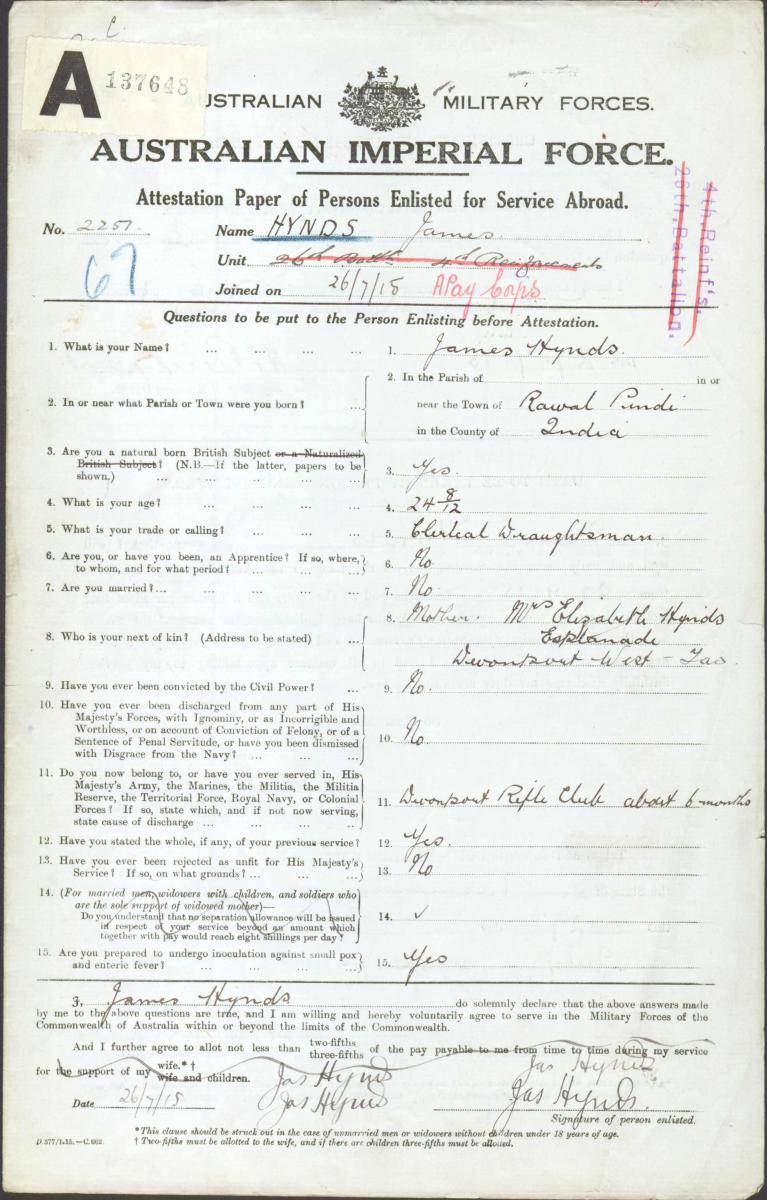 C.
A 137648
AUSTRALIAN MILITARY FORCES.
AUSTRALIAN IMPERIAL FORCE.
Attestation Paper of Persons Enlisted for Service Abroad.
No. 2251. Name HYNDS James.
67
Unit 26th Battn 4th Reinforcements
Joined on 26/7/15 A Pay Corps
4th Reinf's,
26th Battalion,
Questions to be put to the Person Enlisting before Attestation.
1. What is your Name? ... ... ... ... 1. James Hynds.
2. In or near what Parish or Town were you born? ... 2. In the Parish of in or
near the Town of Rawal Pindi
in the County of India
3. Are you a natural born British Subject or a Naturalized
British Subject? (N.B.—If the latter, papers to be
shown.) ... ... ... ... 3. Yes.
4. What is your age? ... ... ... ... 4. 24 8/12
5. What is your trade or calling? ... ... ... 5. Clerical Draughtsman.
6. Are you, or have you been, an Apprentice? If so, where,
to whom, and for what period? ... ... ... 6. No
7. Are you married?... ... ... ... ... 7. No
8. Who is your next of kin? (Address to be stated) ... 8. Mother. Mrs Elizabeth Hynds
Esplanade
Devonport West - Tas.
9. Have you ever been convicted by the Civil Power? ... 9. No.
10. Have you ever been discharged from any part of His
Majesty's Forces, with Ignominy, or as Incorrigible and
Worthless, or on account of Conviction of Felony, or of a
Sentence of Penal Servitude, or have you been dismissed
with Disgrace from the Navy? ... ... ... 10. No
11. Do you now belong to, or have you ever served in, His
Majesty's Army, the Marines, the Militia, the Militia
Reserve, the Territorial Force, Royal Navy, or Colonial
Forces? If so, state which, and if not now serving,
state cause of discharge ... ... ... ... 11. Devonport Rifle Club about 6 months
12. Have you stated the whole, if any, of your previous service? 12. Yes.
13. Have you ever been rejected as unfit for His Majesty's
Service? If so, on what grounds? ... ... ... 13. No
14. (For married men, widowers with children, and soldiers who
are the sole support of widowed mother)—
Do you understand that no separation allowance will be issued
in respect of your service beyond an amount which
together with pay would reach eight shillings per day? 14. ✓
15. Are you prepared to undergo inoculation against small pox
and enteric fever? ... ... ... ... 15. Yes
I, James Hynds do solemnly declare that the above answers made
by me to the above questions are true, and I am willing and hereby voluntarily agree to serve in the Military Forces of the
Commonwealth of Australia within or beyond the limits of the Commonwealth.
And I further agree to allot not less than two-fifths
three-fifths of the pay payable to me from time to time during my service
for the support of my wife.* †
wife and children. Jas Hynds Jas Hynds
Date 26/7/15 Jas Hynds Jas Hynds.
Signature of person enlisted.
*This clause should be struck out in the case of unmarried men or widowers without children under 18 years of age.
D.377/1.15.—C.662. † Two-fifths must be allotted to the wife, and if there are children three-fifths must be allotted.